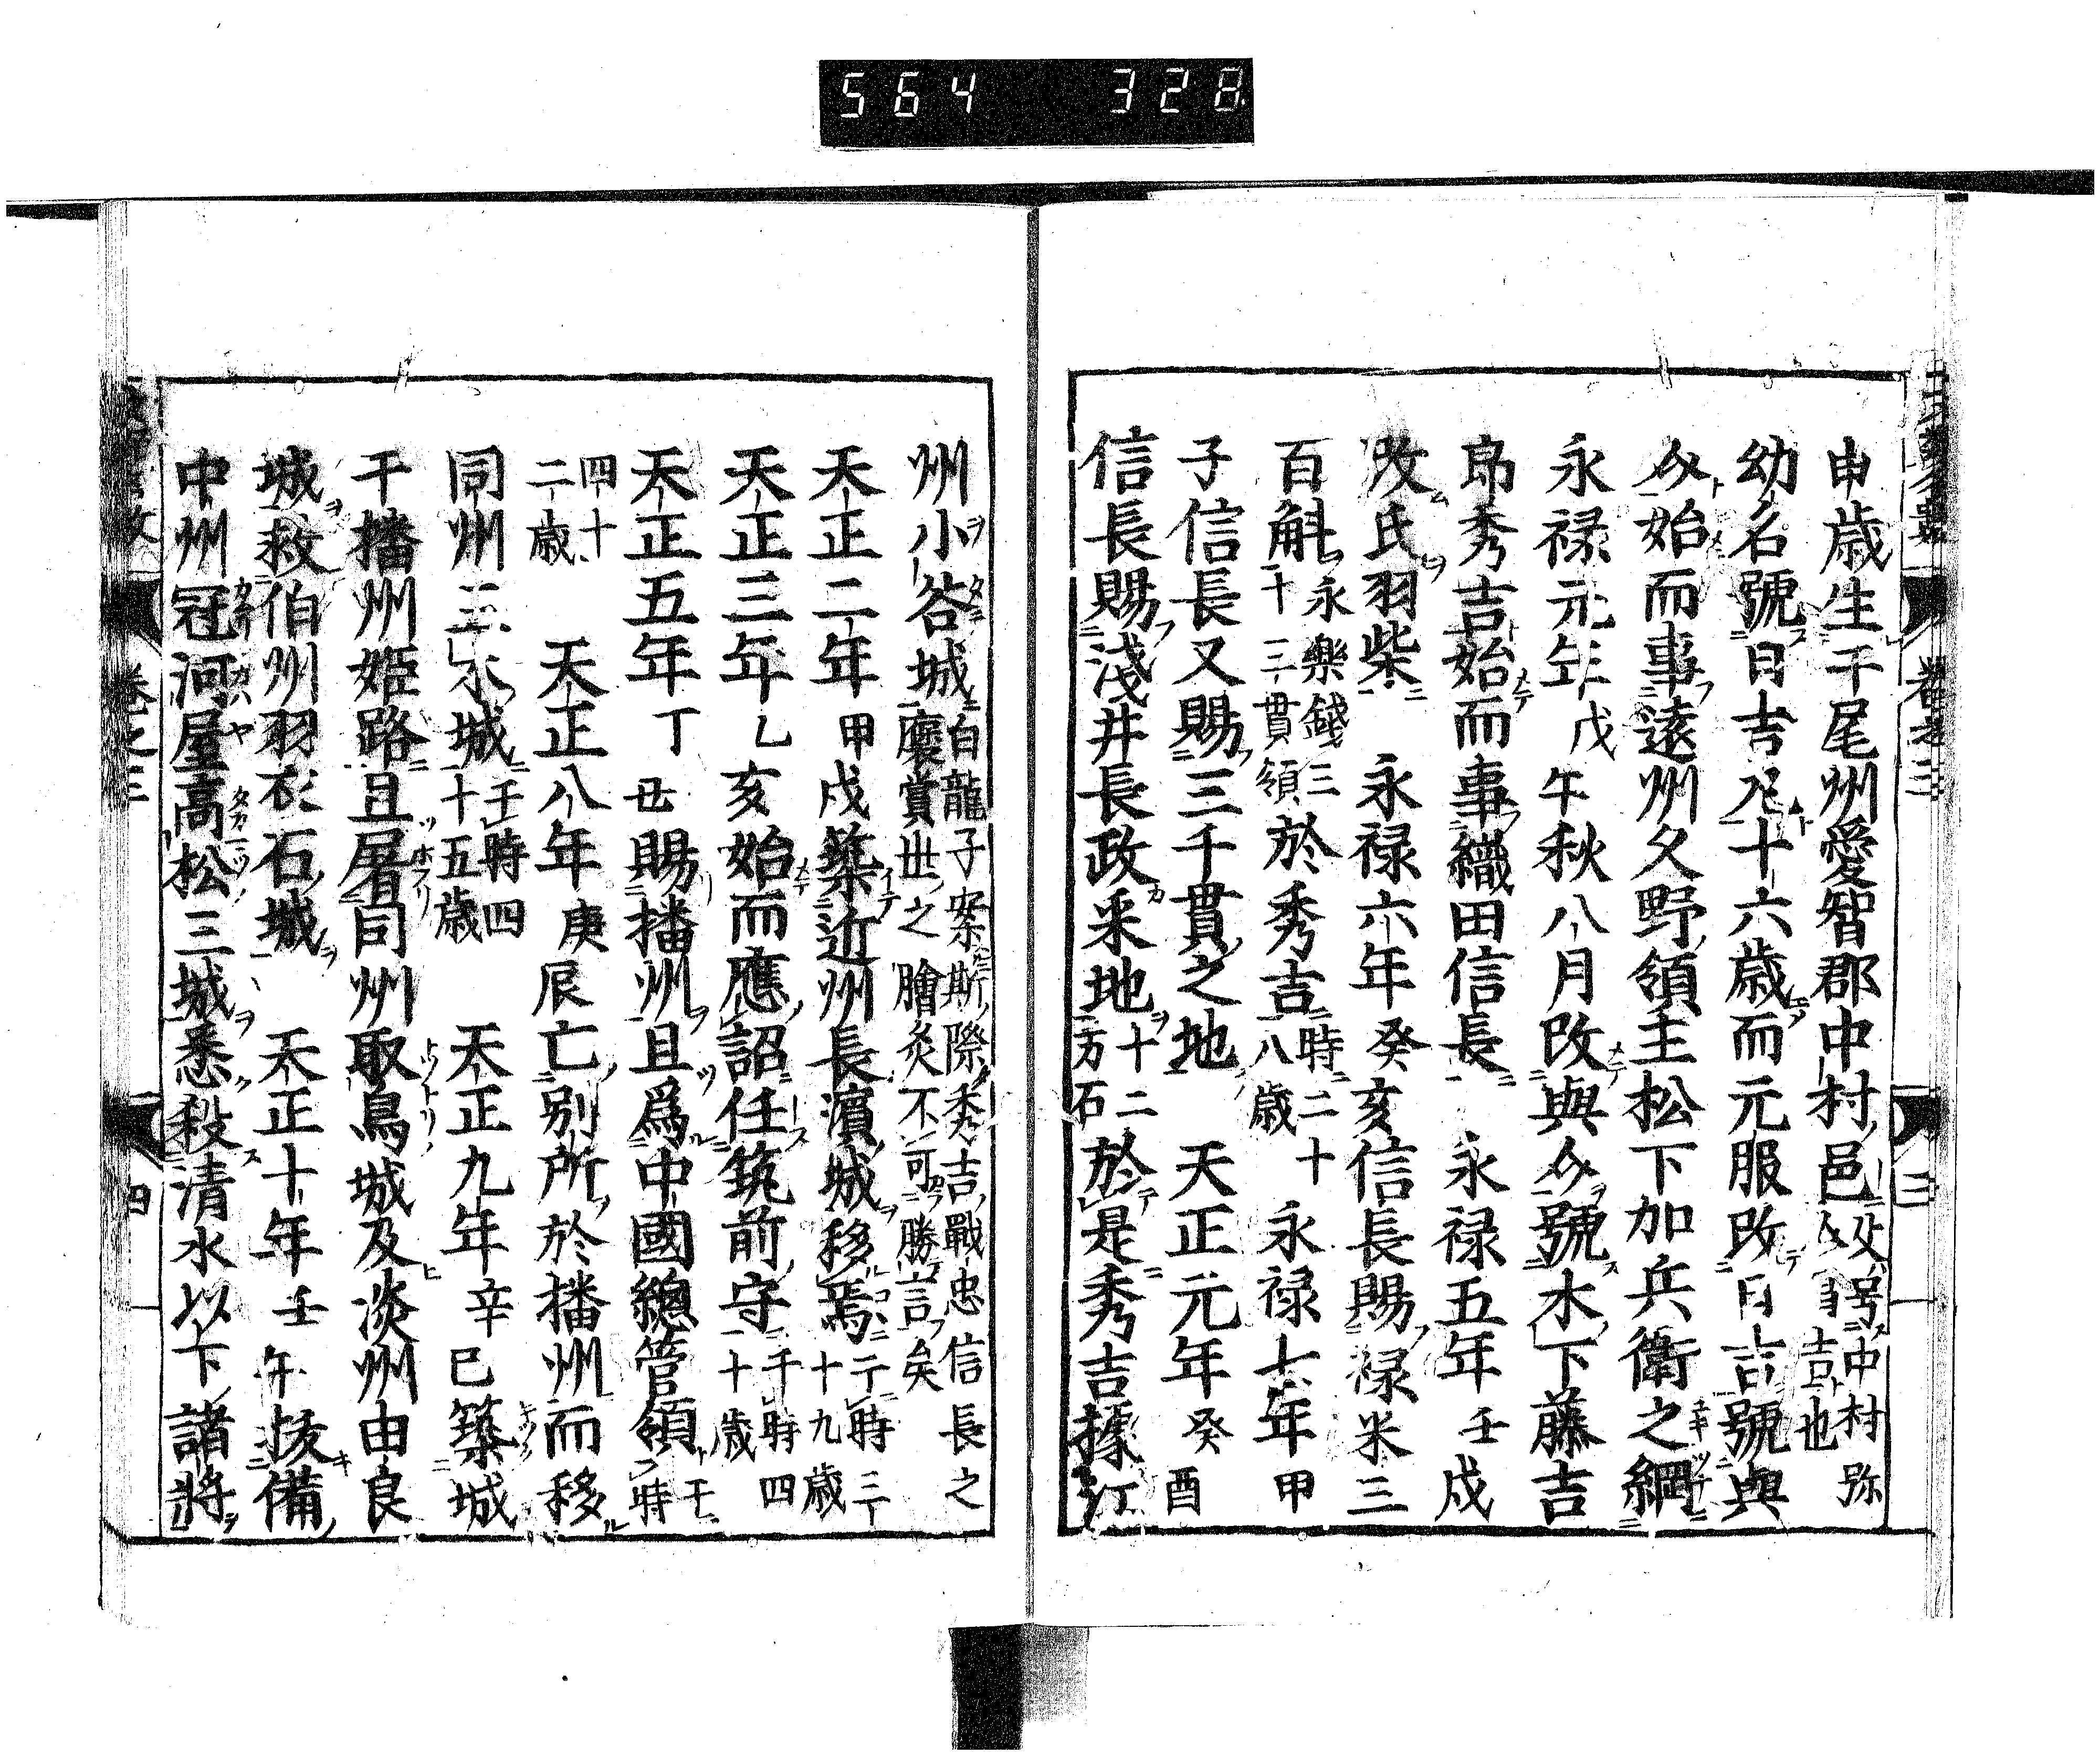 564 328
申歳生于尾州愛智郡中村邑父号中村弥助昌吉也
幼名號日吉及十六歳而元服改日吉號與
𠆢始而事遠州久野領主松下加兵衛之綱
永禄元年戊午秋八月改與𠆢號木下藤吉
郎秀吉始而事織田信長 永禄五年壬戌
改氏羽柴 永禄六年癸亥信長賜禄米三
百斛永樂錢三十三貫領於秀吉時二十八歳 永禄七年甲
子信長又賜三千貫之地 天正元年癸酉
信長賜淺井長政采地十二万石於是秀吉據江
州小谷城白龍子案斯際秀吉戰忠信長之褒賞世之膾炙不可勝言矣
天正二年甲戌築近州長濱城移焉于時三十九歳
天正三年乙亥始而應詔任筑前守于時四十歳
天正五年丁丑賜播州且爲中國總管領于時
四十二歳 天正八年庚辰亡別所於播州而移
同州三木城于時四十五歳 天正九年辛巳築城
于播州姫路且屠同州取鳥城及淡州由良
城救伯州羽衣石城 天正十年壬午抜備
中州冠河屋高松三城悉殺清水以下諸將
卷之三
四